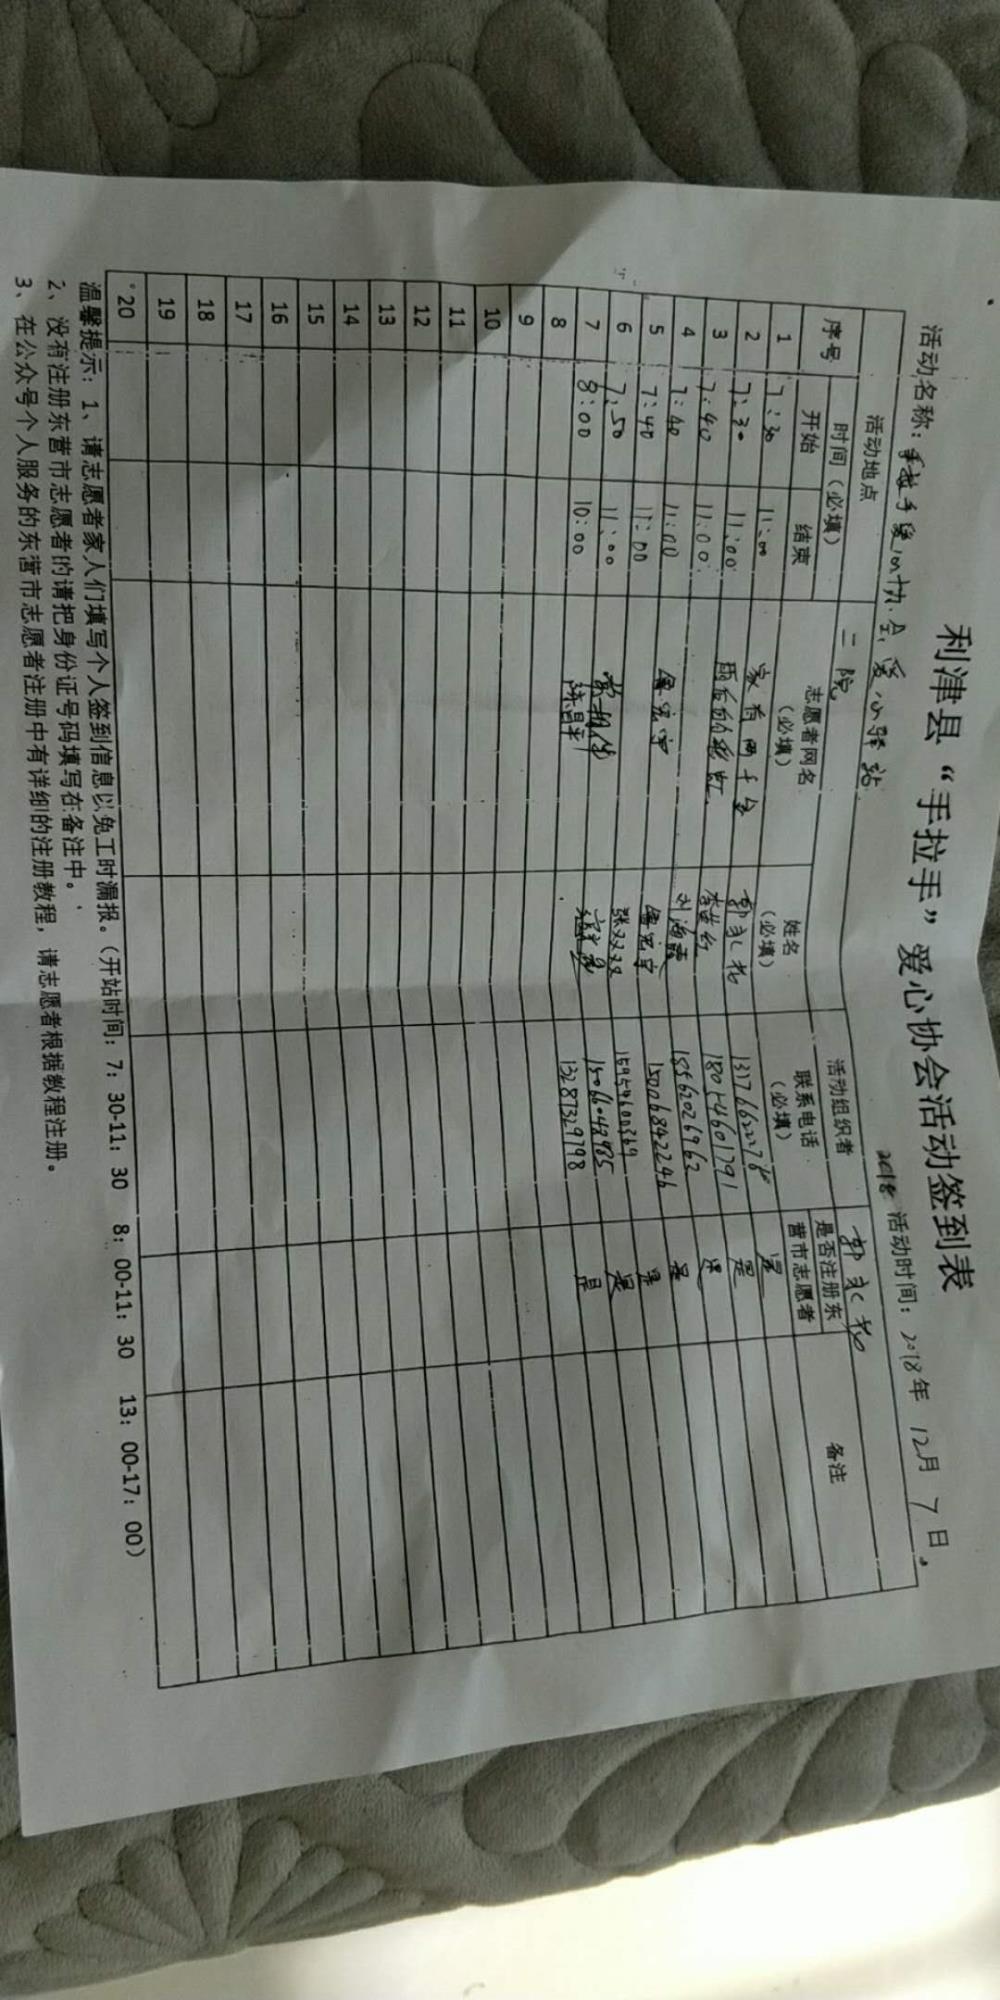 利津县“手拉手”爱心协会活动签到表
活动名称：手拉手爱心协会爱心驿站 2018 活动时间：2018年 12月 7日
活动地点 二院 活动组织者
序号 时间（必填） 志愿者网名（必填） 姓名（必填） 联系电话（必填） 是否注册东营市志愿者 备注
开始 结束
1 7:30 11:00 家有两千金 13176622278 是
2 7:30 11:00 雨后的彩虹 18054601791 是
3 7:40 11:00 刘海霞 18562026962 是
4 7:40 11:00 15006842246 是
5 7:40 11:00 15954600369 是
6 7:50 11:00 15066043985 是
7 8:00 10:00 陈昌平 13287329798 是
8
9
10
11
12
13
14
15
16
17
18
19
20
温馨提示：1、请志愿者家人们填写个人签到信息以免工时漏报。（开站时间：7：30-11：30 8：00-11：30 13：00-17：00）
2、没有注册东营市志愿者的请把身份证号码填写在备注中。
3、在公众号个人服务的东营市志愿者注册中有详细的注册教程，请志愿者根据教程注册。